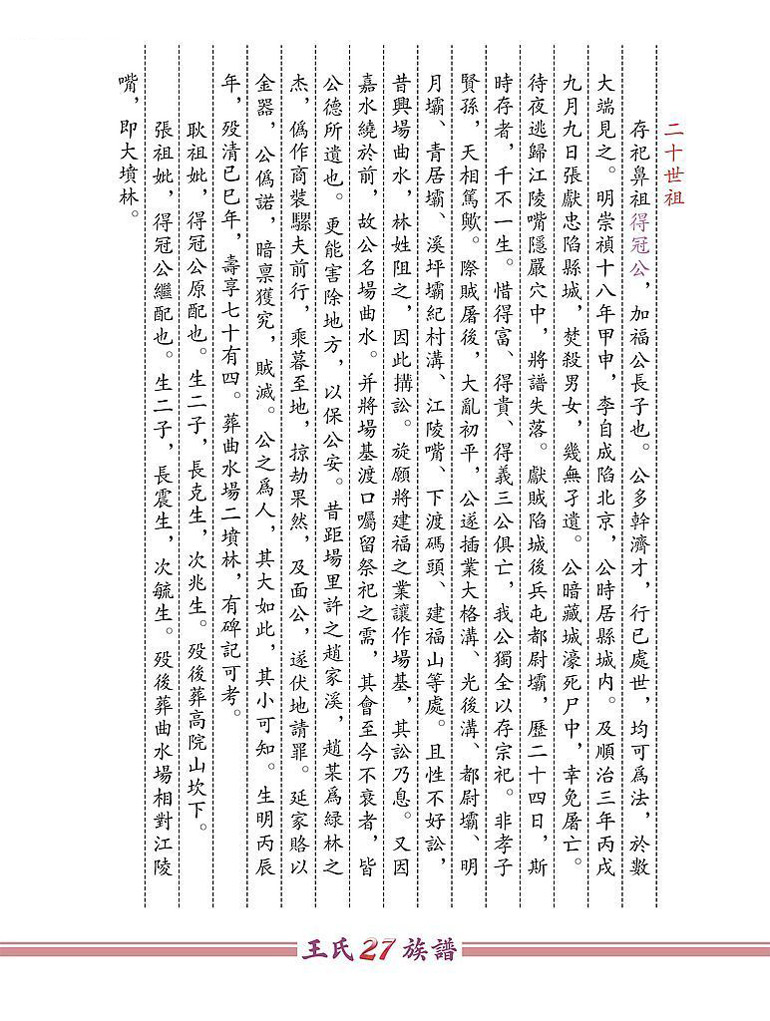 二十世祖
存祀鼻祖得冠公，加福公長子也。公多幹濟才，行已處世，均可爲法，於數
大端見之。明崇禎十八年甲申，李自成陷北京，公時居縣城内。及順治三年丙戌
九月九日張獻忠陷縣城，焚殺男女，幾無孑遺。公暗藏城濠死尸中，幸免屠亡。
待夜逃歸江陵嘴隱嚴穴中，將譜失落。獻賊陷城後兵屯都尉壩，歷二十四日，斯
時存者，千不一生。惜得富、得貴、得義三公俱亡，我公獨全以存宗祀。非孝子
賢孫，天相篤歟。際賊屠後，大亂初平，公遂插業大格溝、光後溝、都尉壩、明
月壩、青居壩、溪坪壩紀村溝、江陵嘴、下渡碼頭、建福山等處。且性不好訟，
昔興場曲水，林姓阻之，因此搆訟。旋願將建福之業讓作場基，其訟乃息。又因
嘉水繞於前，故公名場曲水。并將場基渡口囑留祭祀之需，其會至今不衰者，皆
公德所遺也。更能害除地方，以保公安。昔距場里許之趙家溪，趙某爲綠林之
杰，僞作商裝騾夫前行，乘暮至地，掠劫果然，及面公，遂伏地請罪。延家賂以
金器，公僞諾，暗稟獲究，賊滅。公之爲人，其大如此，其小可知。生明丙辰
年，殁清已巳年，壽享七十有四。葬曲水場二墳林，有碑記可考。
耿祖妣，得冠公原配也。生二子，長克生，次兆生。殁後葬高院山坎下。
張祖妣，得冠公繼配也。生二子，長震生，次毓生。殁後葬曲水場相對江陵
嘴，即大墳林。
王氏27族譜